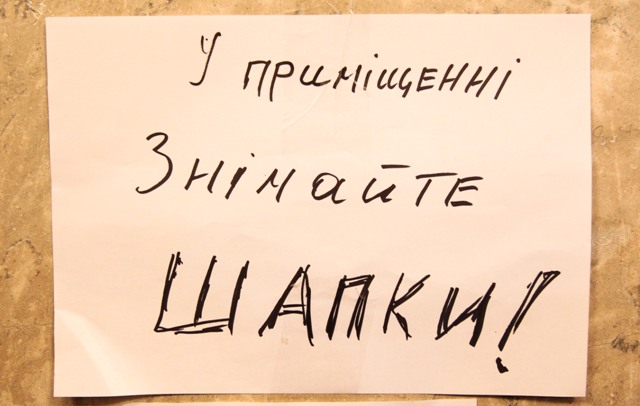 У приміщенні
Знімайте
ШАПКИ!